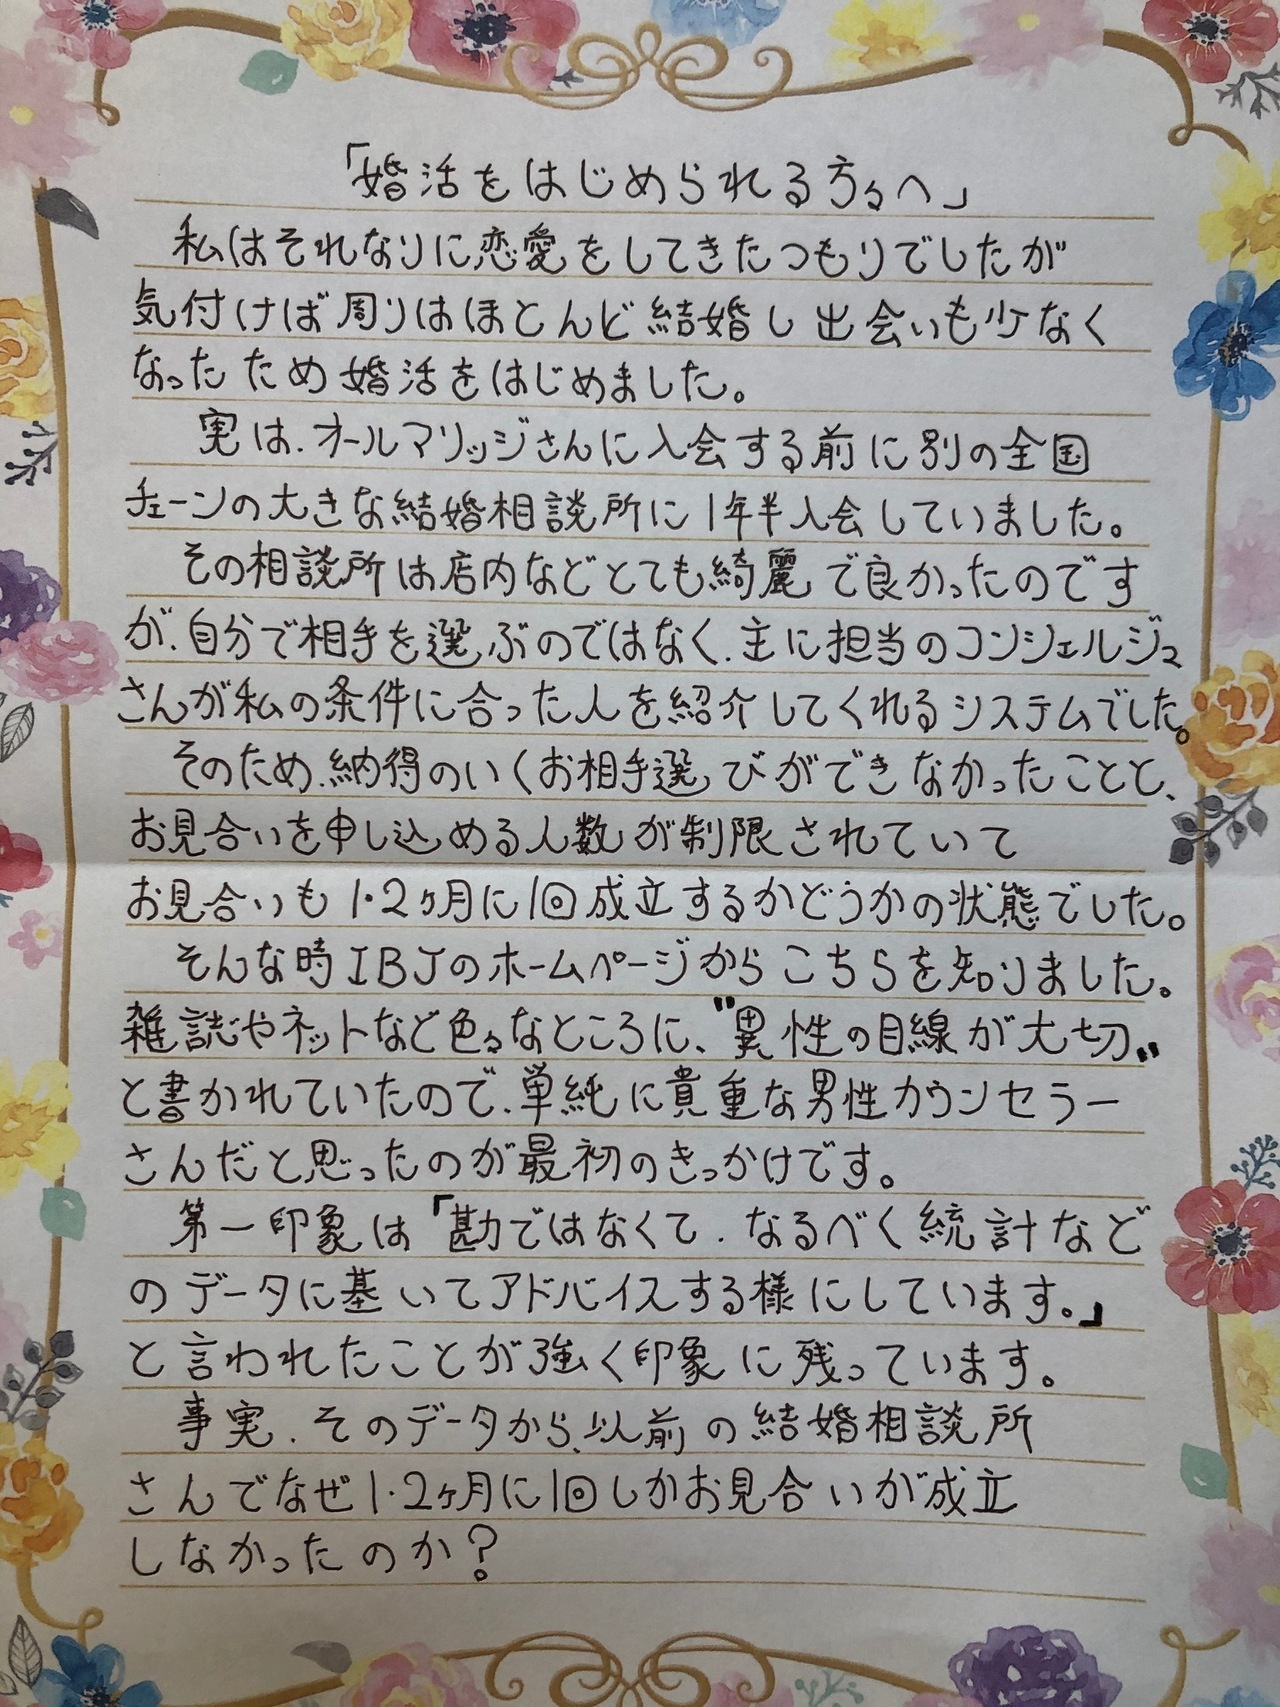 「婚活をはじめられる方々へ」
私はそれなりに恋愛をしてきたつもりでしたが
気付けば周りはほとんど結婚し出会いも少なく
なったため婚活をはじめました。
実は、オールマリッジさんに入会する前に別の全国
チェーンの大きな結婚相談所に1年半入会していました。
その相談所は店内などとても綺麗で良かったのです
が、自分で相手を選ぶのではなく、主に担当のコンシェルジュ
さんが私の条件に合った人を紹介してくれるシステムでした。
そのため、納得のいくお相手選びができなかったことと、
お見合いを申し込める人数が制限されていて
お見合いも1・2ヶ月に1回成立するかどうかの状態でした。
そんな時IBJのホームページからこちらを知りました。
雑誌やネットなど色々なところに、〝異性の目線が大切〟
と書かれていたので、単純に貴重な男性カウンセラー
さんだと思ったのが最初のきっかけです。
第一印象は「勘ではなくて、なるべく統計など
のデータに基いてアドバイスする様にしています。」
と言われたことが強く印象に残っています。
事実、そのデータから、以前の結婚相談所
さんでなぜ1・2ヶ月に1回しかお見合いが成立
しなかったのか?